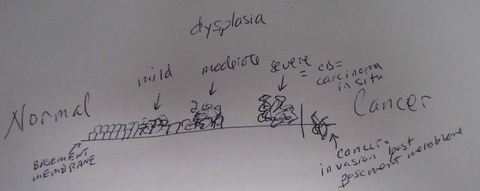 dysplasia
mild
moderate
severe
= CIS =
carcinoma
in situ
Normal
Cancer
BASEMENT
MEMBRANE
cancer =
invasion past
basement membrane